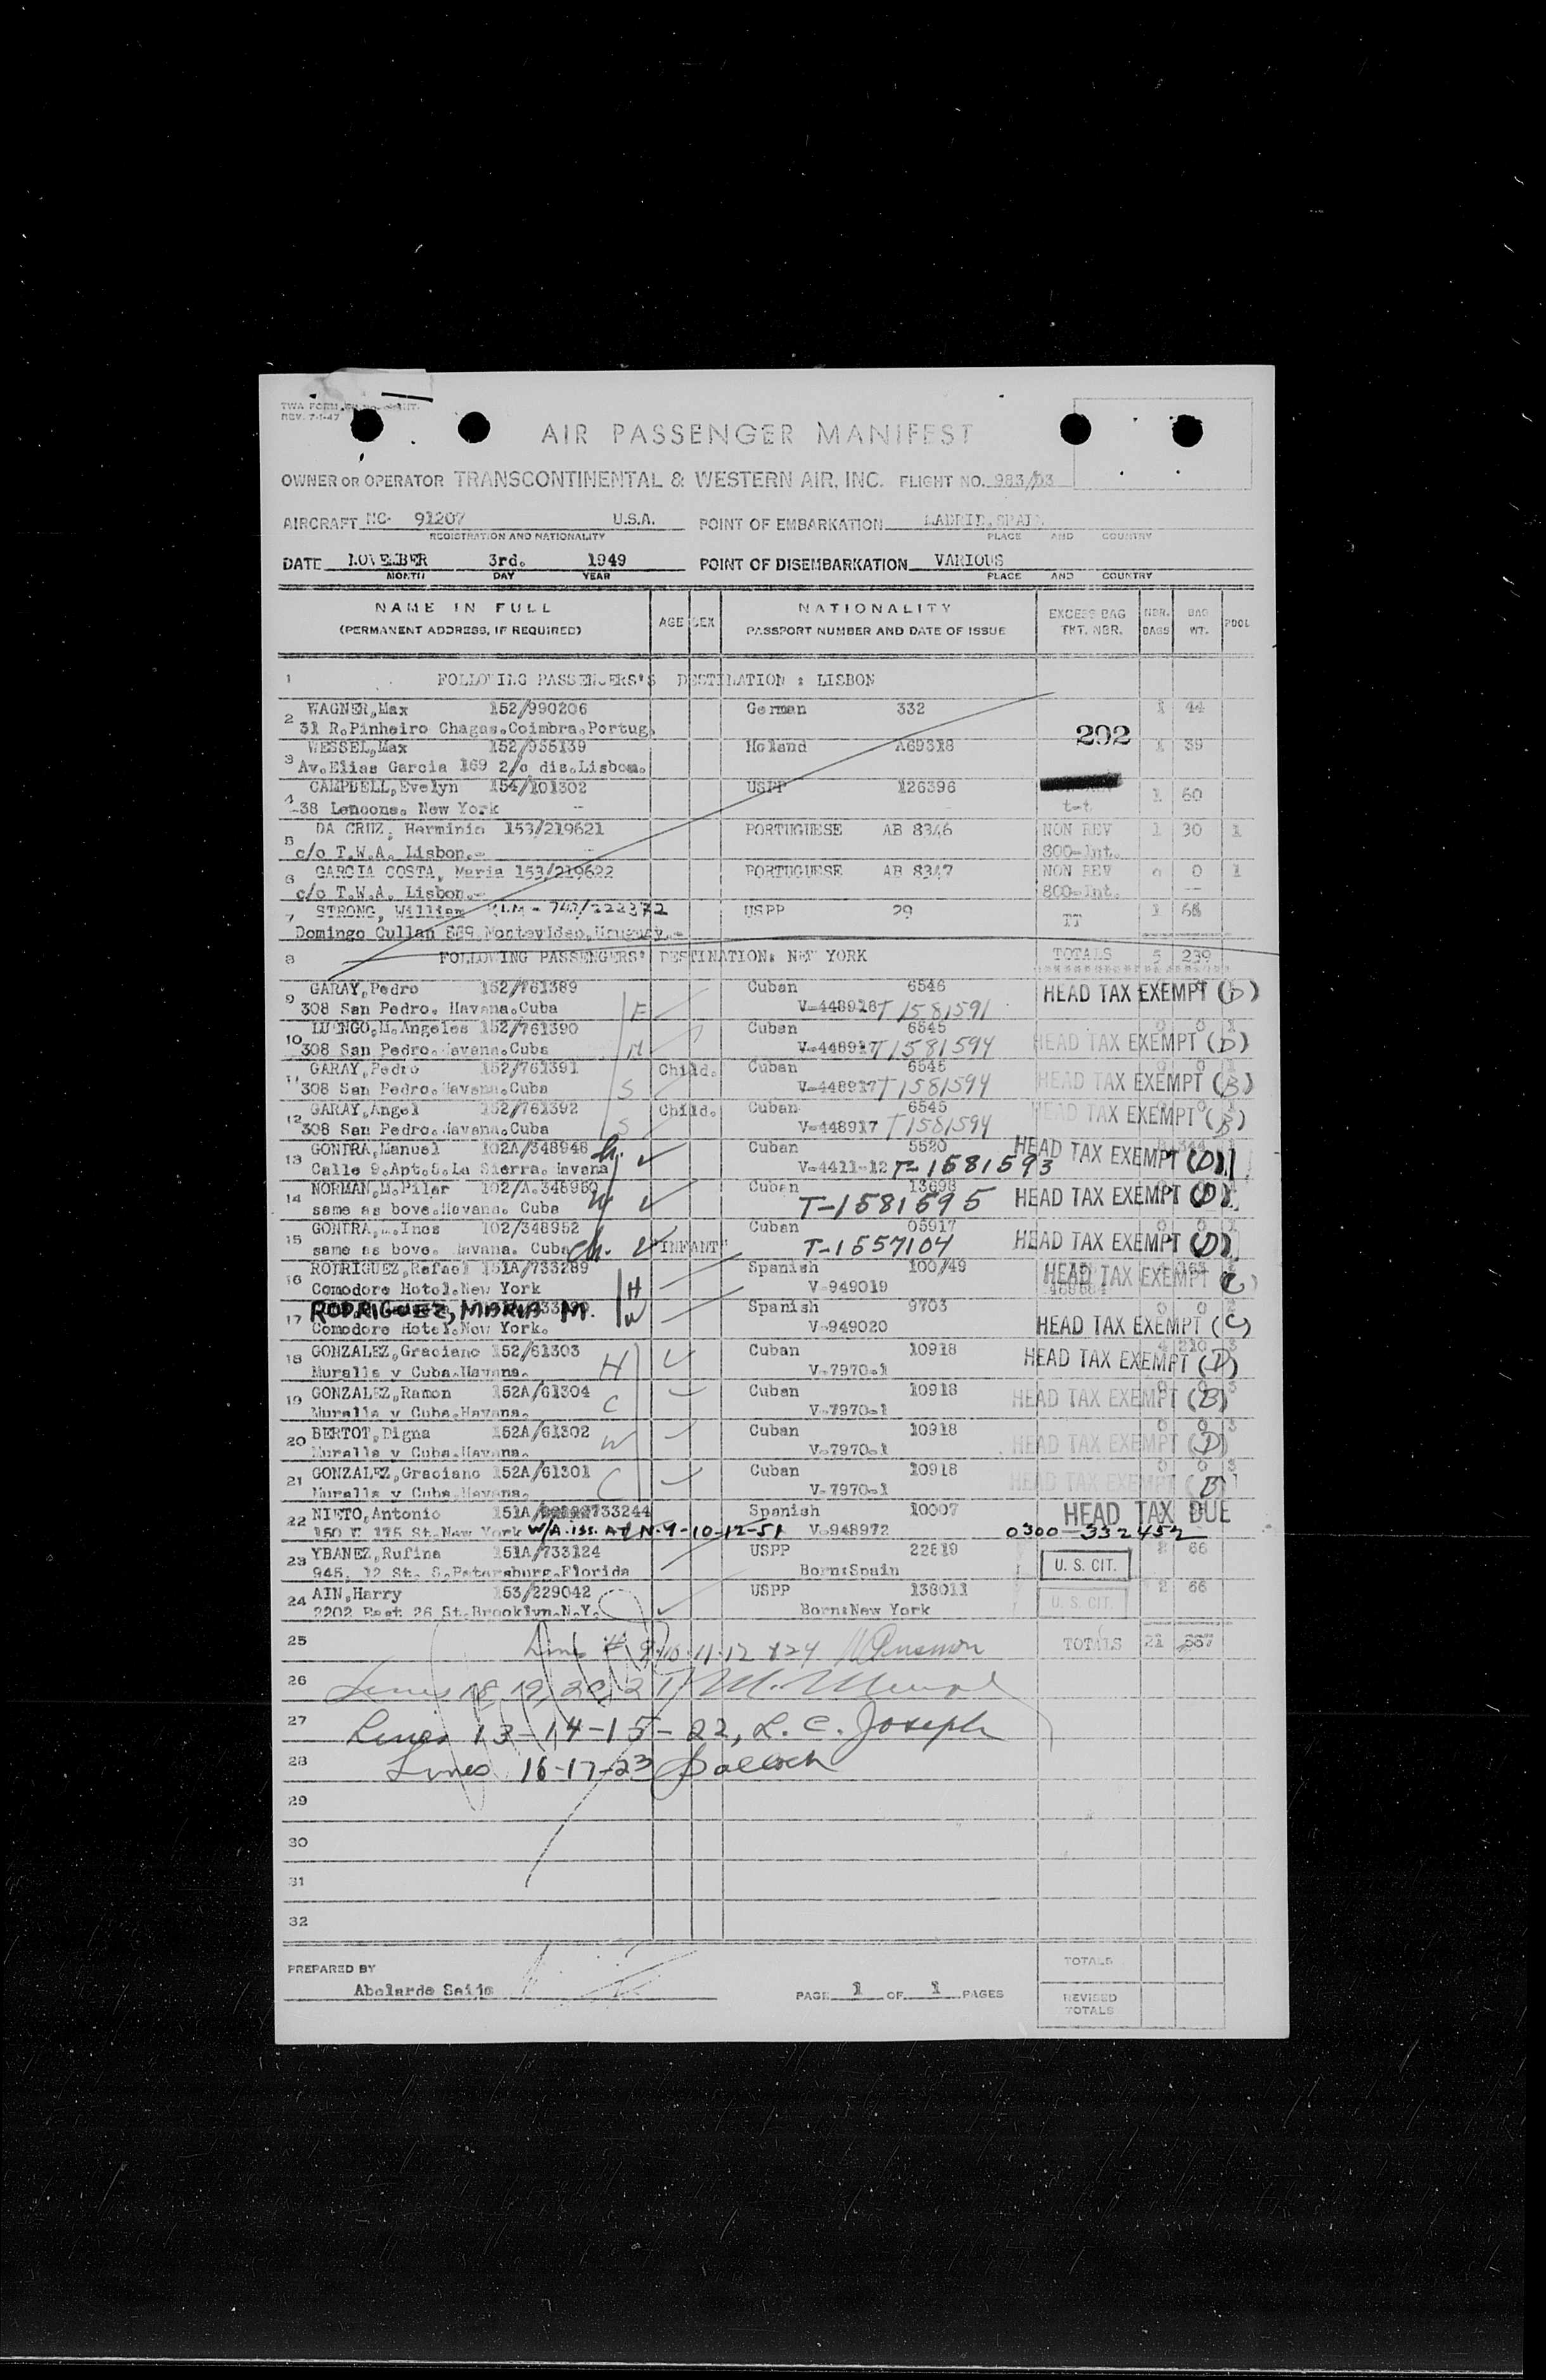 TWA FORM
REV. 7-1-47
AIR PASSENGER MANIFEST
OWNER OR OPERATOR TRANSCONTINENTAL & WESTERN AIR, INC. FLIGHT NO. 983/03
AIRCRAFT NC- 91207 U.S.A. POINT OF EMBARKATION MADRID, SPAIN
REGISTRATION AND NATIONALITY PLACE AND COUNTRY
DATE NOVEMBER 3rd. 1949 POINT OF DISEMBARKATION VARIOUS
MONTH DAY YEAR PLACE AND COUNTRY
NAME IN FULL (PERMANENT ADDRESS, IF REQUIRED) AGE SEX NATIONALITY PASSPORT NUMBER AND DATE OF ISSUE EXCESS BAG TKT. NBR. NBR. BAGS BAG WT. POOL
1 FOLLOWING PASSENJERS'S DESTINATION : LISBON
2 WAGNER,Max 152/990206 German 332 1 44
31 R.Pinheiro Chagas.Coimbra.Portug.
292
3 WESSEL,Max 152/955139 Holand A69318 1 39
Av.Elias Garcia 169 2/o dis.Lisboa.
4 CAMPBELL,Evelyn 154/101302 USPP 126396 1 60
-38 Lencons. New York - t-t
5 DA CRUZ, Herminio 153/219621 PORTUGUESE AB 8346 NON REV 1 30 1
c/o T.W.A. Lisbon.- 800-Int.
6 GARCIA COSTA, Maria 153/219622 PORTUGUESE AB 8347 NON REV 0 0 1
c/o T.W.A. Lisbon.- 800-Int.
7 STRONG, William KLM - 743/222372 USPP 29 TT 1 66
Domingo Cullan 889 Montevideo,Uruguay.-
8 FOLLOWING PASSENGERS' DESTINATION: NEW YORK TOTALS 5 239
9 GARAY,Pedro 152/761389 Cuban 6546 HEAD TAX EXEMPT (D)
308 San Pedro. Havana.Cuba F V-448918 T1581591
10 LUENGO,M.Angeles 152/761390 Cuban 6545 0 0 1
308 San Pedro.Havana.Cuba M V-448917 T1581594 HEAD TAX EXEMPT (D)
11 GARAY,Pedro 152/761391 Child. Cuban 6545
308 San Pedro.Havana.Cuba S V-448917 T1581594 HEAD TAX EXEMPT (B)
12 GARAY,Angel 152/761392 Child. Cuban 6545
308 San Pedro.Havana.Cuba S V-448917 T1581594 HEAD TAX EXEMPT (B)
13 GONTRA,Manuel 102A/348948 h. Cuban 5520 344
Calle 9.Apt.5.La Sierra.Havana V-4411-12 T-1581593 HEAD TAX EXEMPT (D)
14 NORMAN,M.Pilar 102/A.348950 W Cuban 13698
same as bove.Havana. Cuba T-1581595 HEAD TAX EXEMPT (D)
15 GONTRA,M.Ines 102/348952 Cuban 05917 0 0 1
same as bove. Havana. Cuba ch. INFANT T-1557104 HEAD TAX EXEMPT (D)
16 RODRIGUEZ,Rafael 151A/733289 Spanish 100/49 HEAD TAX EXEMPT (C)
Comodore Hotel.New York H V-949019
17 RODRIGUEZ, MARIA M. W Spanish 9703 0 0 2
Comodore Hotel.New York. V-949020 HEAD TAX EXEMPT (C)
18 GONZALEZ,Graciano 152/61303 H Cuban 10918 4 210 3
Muralla y Cuba.Havana. V-7970-1 HEAD TAX EXEMPT (D)
19 GONZALEZ,Ramon 152A/61304 C Cuban 10918 0 0 3
Muralla y Cuba.Havana. V-7970-1 HEAD TAX EXEMPT (B)
20 BERTOT,Digna 152A/61302 W Cuban 10918 0 0 3
Muralla y Cuba.Havana. V-7970-1 HEAD TAX EXEMPT (D)
21 GONZALEZ,Graciano 152A/61301 C Cuban 10918 0 0 3
Muralla y Cuba.Havana. V-7970-1 HEAD TAX EXEMPT (B)
22 NIETO,Antonio 151A/733244 Spanish 10007 HEAD TAX DUE
150 W 175 St.New York W/A. iss. At N.Y-10-12-51 V-948972 0300-332452
23 YBANEZ,Rufina 151A/733124 USPP 22819 2 66
945, 12 St. S.Petersburg.Florida Born:Spain U. S. CIT.
24 AIN,Harry 153/229042 USPP 138011 2 66
2202 East 26 St.Brooklyn.N.Y. Born:New York U. S. CIT.
25 Lines # 9-10-11-12 &24 TOTALS 21
26 Lines 18, 19, 20, 21
27 Lines 13-14-15-22, L. C. Joseph
28 Lines 16-17-23
29
30
31
32
PREPARED BY TOTALS
Abelardo Seijo PAGE 1 OF 1 PAGES REVISED TOTALS